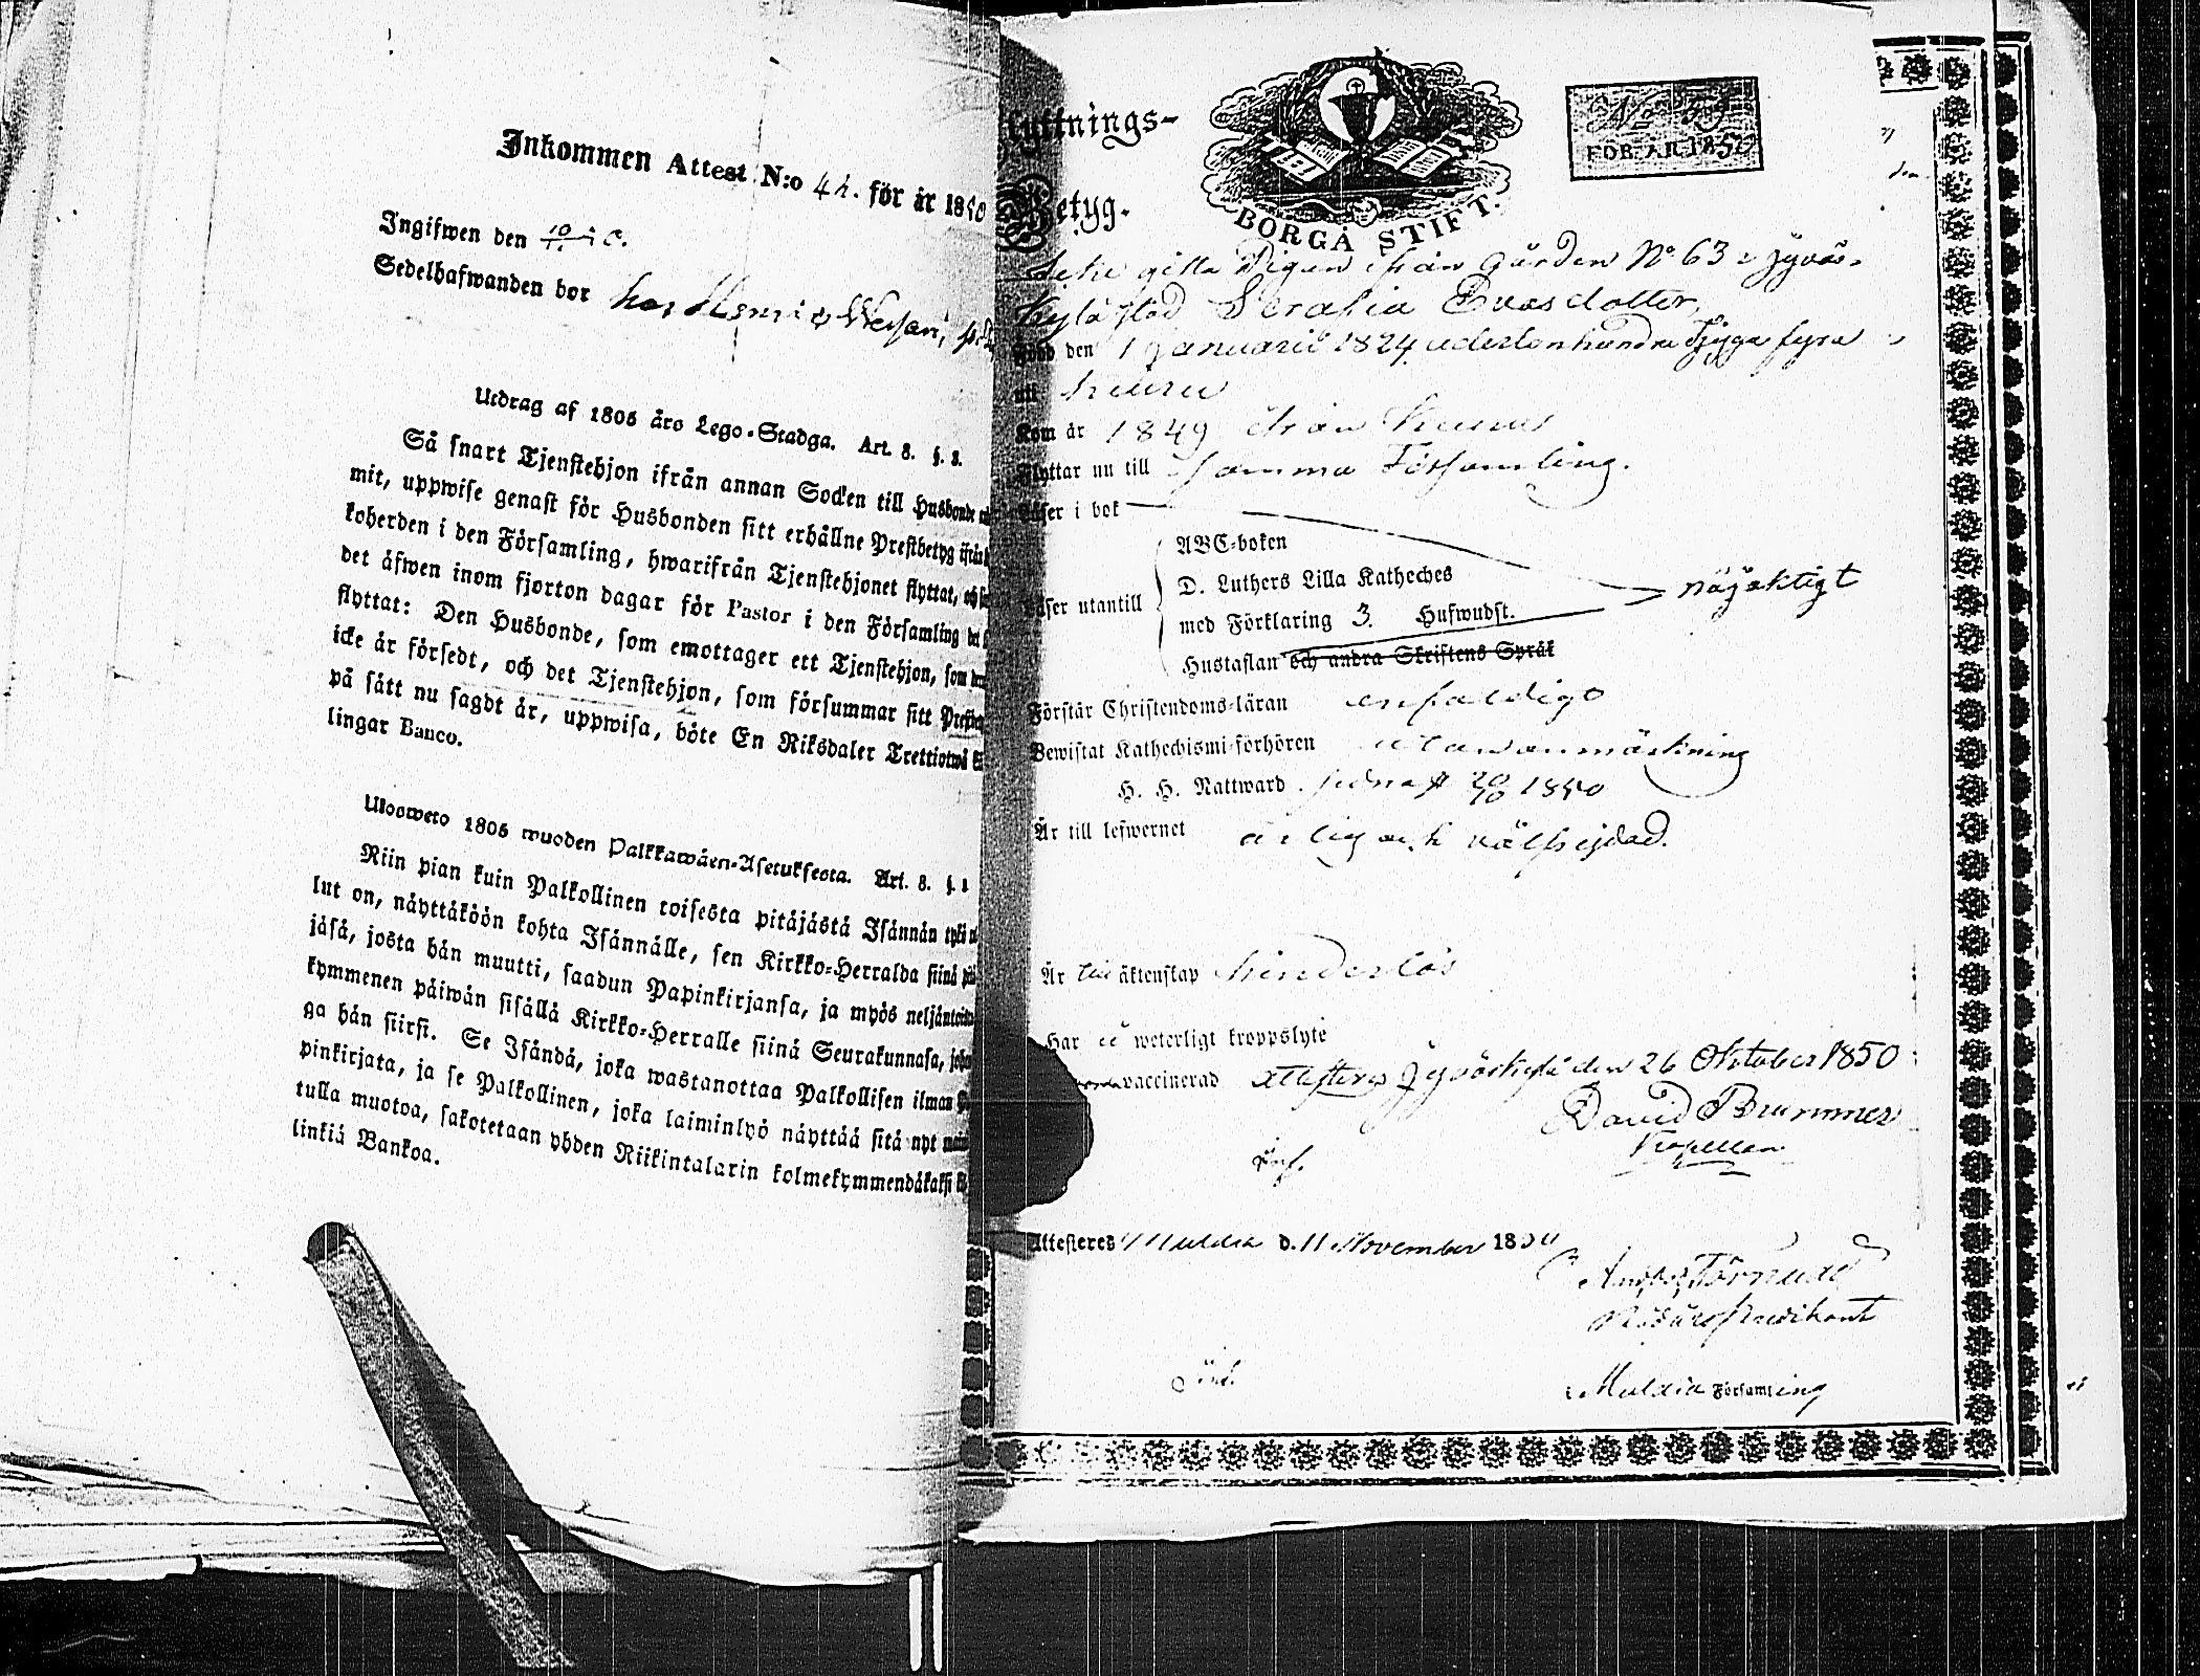 Inkommen Attest N:o 42. för år 1850
Ingifwen den
Sedelhafwanden bor hos Henric
Utdrag af 1805 års Lego-Stadga. Art. 8. §. 8.
Så snart Tjenstehjon ifrån annan Socken till Husbonde
mit, uppwise genast för Husbonden sitt erhållne Prestbetyg
koherden i den Församling, hwarifrån Tjenstehjonet flyttat,
det äfwen inom fjorton dagar för Pastor i den Församling
flyttat: Den Husbonde, som emottager ett Tjenstehjon, som
icke är försedt, och det Tjenstehjon, som försummar sitt
på sätt nu sagdt är, uppwisa, böte En Riksdaler Trettiotwå
lingar Banco.
Ulosweto 1805 wuoden Palkkawäen-Asetuksesta. Art. 8. §.
Niin pian kuin Palkollinen toisesta pitäjästä Isännän tykö
lut on, näyttäköön kohta Isännälle, sen Kirkko-Herralda siinä
jäsä, josta hän muutti, saadun Papinkirjansa, ja myös
kymmenen päiwän sisällä Kirkko-Herralle siinä Seurakunnasa,
ga hän siirsi. Se Isändä, joka wastanottaa Palkollisen ilman
pinkirjata, ja se Palkollinen, joka laiminlyö näyttää sitä nyt
tulla muotoa, sakotetaan yhden Riikintalarin kolmekymmendäkaksi
linkiä Bankoa.
Flyttnings-
Betyg.
BORGÅ STIFT.
No
FÖR ÅR 185
Pigan ifrån Gården No 63 i Jyväs-
kylä stad Serafia Evasdotter,
Född den 1 Januarii 1824 adertonhundra tjugu fyra
uti Keuru
Kom år 1849 ifrån Keuru
Flyttar nu till samma Församling.
Läser i bok
ABC-boken
D. Luthers Lilla Katheches
Läser utantill
med Förklaring 3. Hufwudst.
nöjaktigt
Hustaflan och andra Skriftens Språk
Förstår Christendoms-läran enfaldigt
Bewistat Kathechismi-förhören utan anmärkning
H. H. Nattward sednast 20/10 1850
Är till lefwernet ärlig och välfrejdad.
Är till äktenskap hinderlös
Har ej weterligt kroppslyte
vaccinerad attesteras Jyväskylä den 26 Oktober 1850
David Brummer
Kapellan
Inf.
Attesteres Multia d. 11 November 1850
Törnudd
Nådårspredikant
Inf.
i Multia Församling